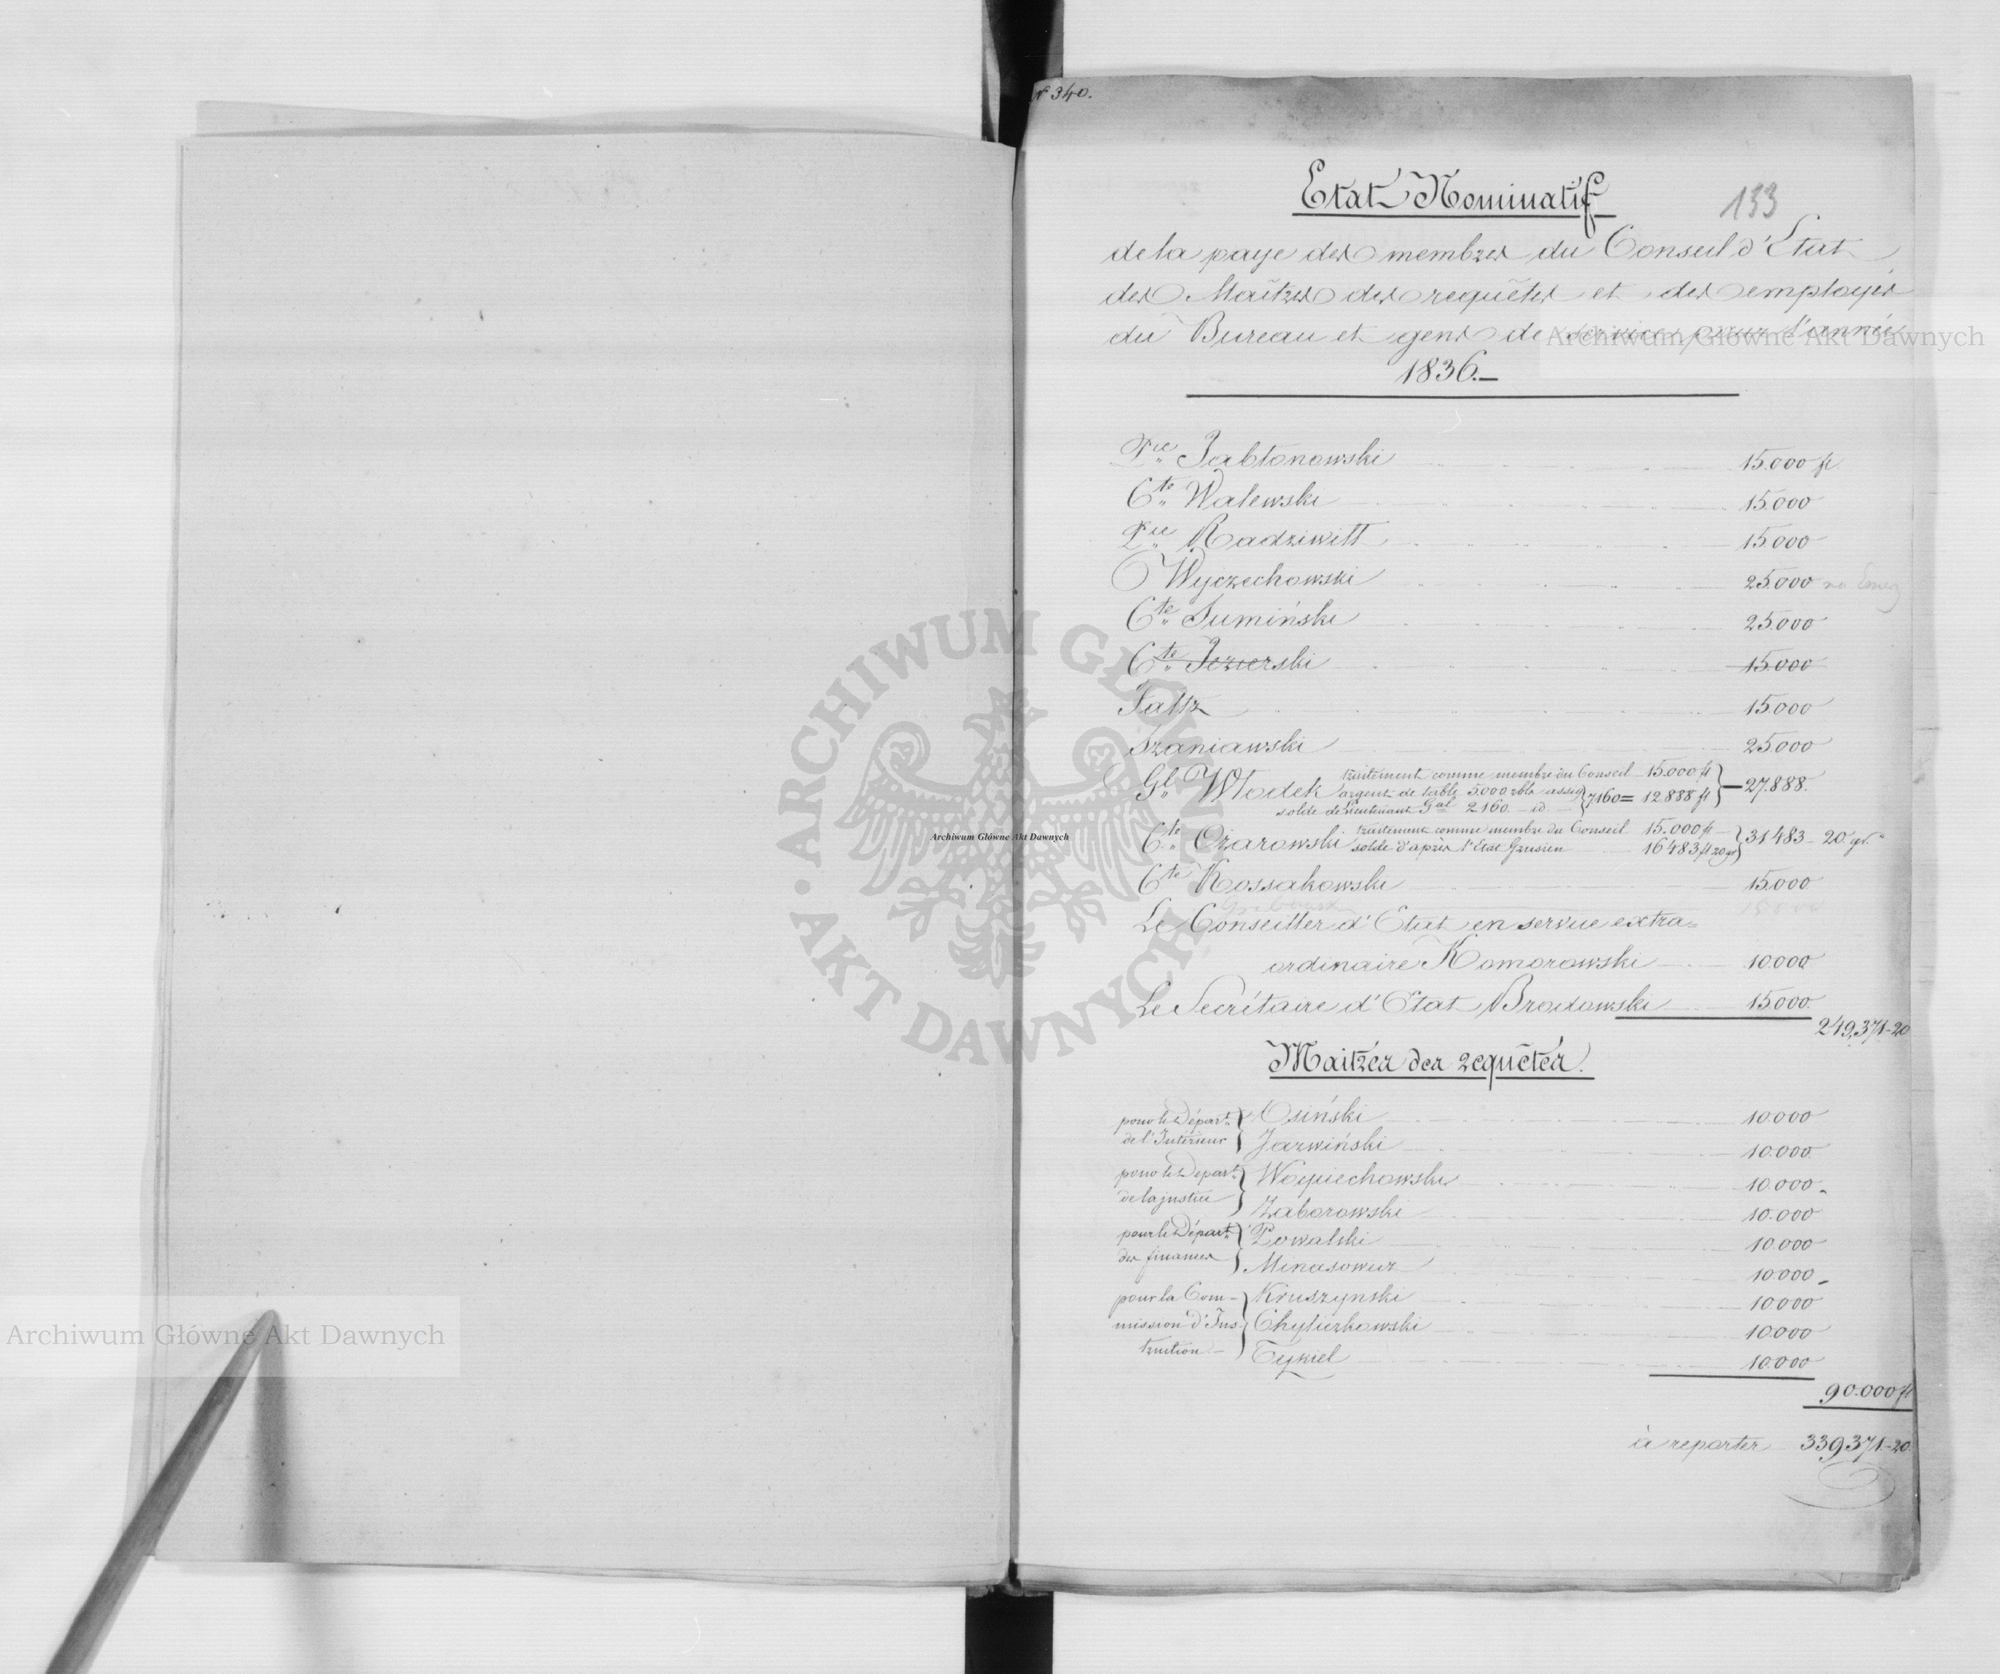 Nº 340.
133
Etat Nominatif
de la paye des membres du Conseil d'Etat
des Maîtres des requêtes et des employés
du Bureau et gens de service pour l'année
1836.
Pce Jabłonowski 15.000 fl.
Cte Walewski 15.000
Pce Radziwiłł 15.000
Wyczechowski 25.000
Cte Sumiński 25.000
Cte Jezierski 15.000
Faltz 15.000
Szaniawski 25.000
Gl Włodek traitement comme membre du Conseil 15.000 fl
argent de table 5.000 rbls assig
solde de lieutenant Gal 2160 – id. – } 7160 = 12888 fl } – 27.888.
Cte Ożarowski traitement comme membre du Conseil 15.000 fl
solde d'après l'Etat 16483 fl 20 gr } 31483 – 20 gr.
Cte Kossakowski 15.000
Grabowski 15000
Le Conseiller d'Etat en service extra=
ordinaire Komorowski 10.000
Le Secrétaire d'Etat Brodowski 15.000.
249,371-20
Maitres des requêtes.
pour le Départ.
de l'Intérieur } Osiński 10.000
Jarwiński 10.000
pour le Départ.
de la justice } Woyciechowski 10.000
Zaborowski 10.000
pour le Départ.
des finances } Powalski 10.000
Minasowicz 10.000
pour la Com-
mission d'Ins-
truction – } Kruszynski 10.000
Chyliczkowski 10.000
Tykiel 10.000
90.000 fl
à reporter 339,371.-20.
ARCHIWUM GŁÓWNE AKT DAWNYCH
Archiwum Główne Akt Dawnych
Archiwum Główne Akt Dawnych
Archiwum Główne Akt Dawnych